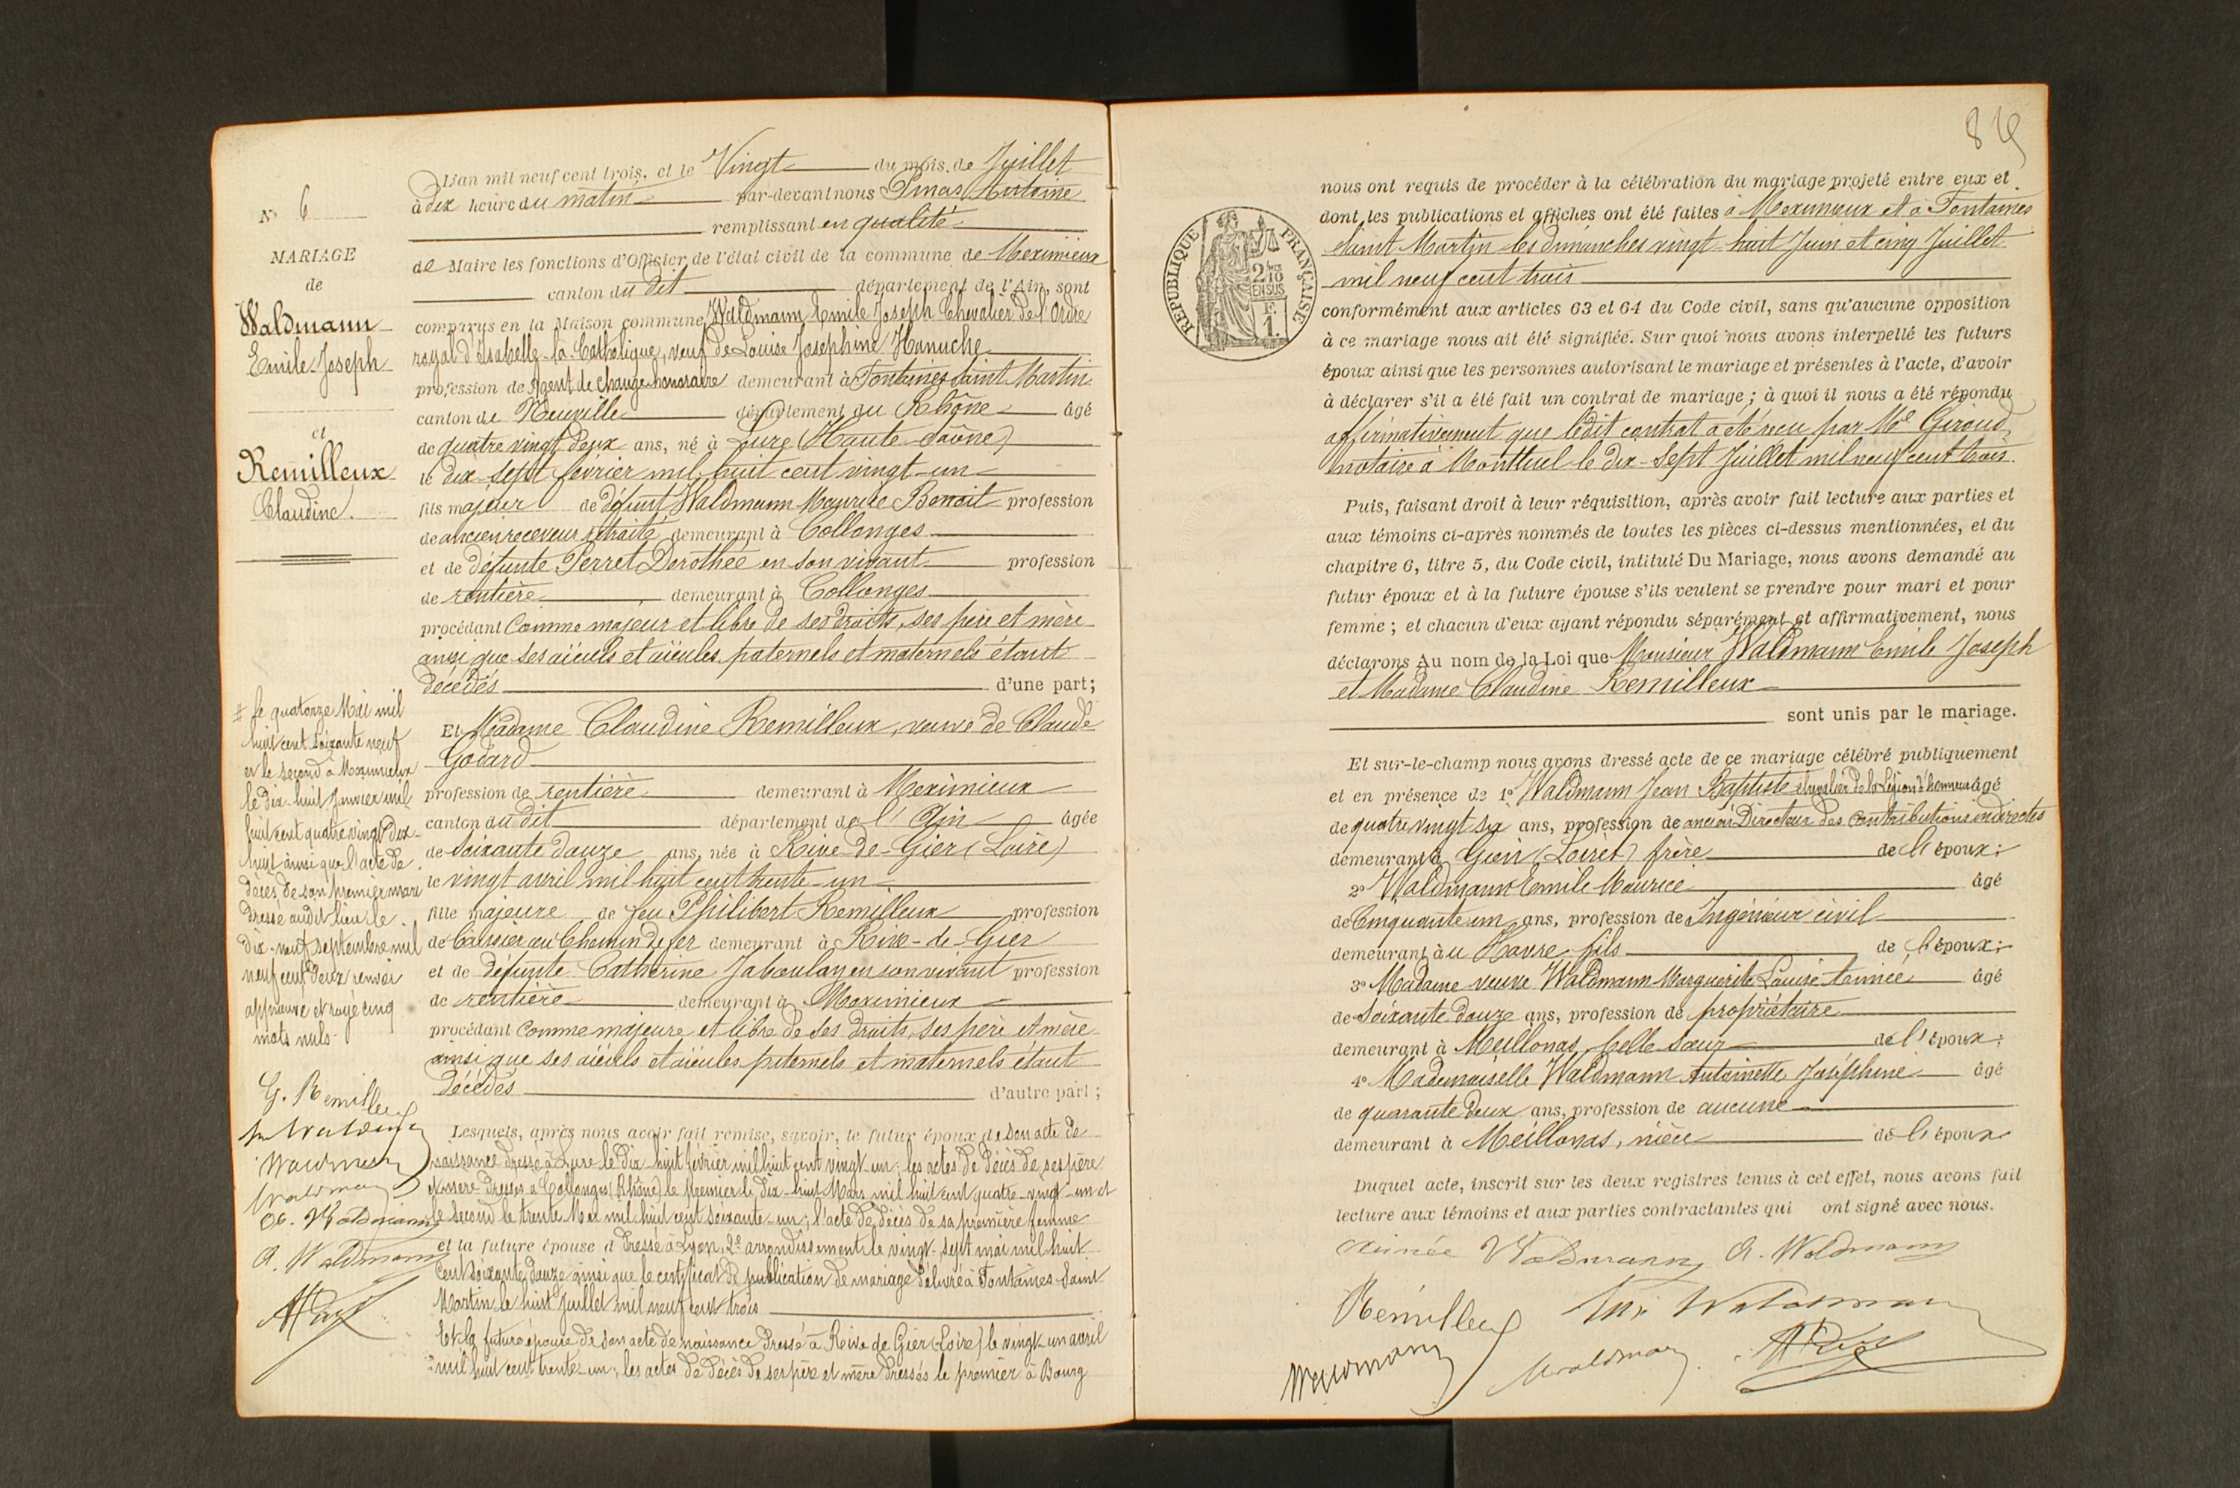 N° 6
MARIAGE
de
Waldmann
Emile Joseph
et
Remilleux
Claudine.
L'an mil neuf cent trois, et le Vingt du mois de Juillet
à dix heure du matin par-devant nous Pinas Antoine
remplissant en qualité
de Maire les fonctions d'Officier de l'état civil de la commune de Meximieux
canton du dit département de l'Ain, sont
comparus en la Maison commune, Waldmann Emile Joseph Chevalier de l'Ordre
royal d'Isabelle la Catholique, veuf de Louise Josephine Hanuche
profession de Agent de change honoraire demeurant à Fontaines Saint Martin
canton de Neuville département du Rhône âgé
de quatre vingt deux ans, né à Lure (Haute-Saône)
le dix-sept février mil huit cent vingt-un
fils majeur de défunt Waldmann Maurice Benoit profession
de ancien receveur retraité demeurant à Collonges
et de défunte Perret Dorothée en son vivant profession
de rentière demeurant à Collonges
procédant comme majeur et libre de ses droits, ses père et mère
ainsi que ses aïeuls et aïeules paternels et maternels étant
décédés d'une part;
Et Madame Claudine Remilleux, veuve de Claude
Godard
profession de rentière demeurant à Meximieux
canton du dit département de l'Ain âgée
de soixante douze ans, née à Rive-de-Gier (Loire)
le vingt avril mil huit cent trente-un
fille majeure de feu Philibert Remilleux profession
de Caissier au Chemin de fer demeurant à Rive-de-Gier
et de défunte Catherine Jaboulay en son vivant profession
de rentière demeurant à Meximieux
procédant comme majeure et libre de ses droits, ses père et mère
ainsi que ses aïeuls et aïeules paternels et maternels étant
décédés d'autre part;
Lesquels, après nous avoir fait remise, savoir, le futur époux de son acte de
naissance dressé à Lure le dix-huit février mil huit cent vingt-un, les actes de décès de ses père
et mère dressés à Collonges (Rhône) le premier le dix-huit Mars mil huit cent quatre-vingt-un et
le second le trente Mai mil huit cent soixante-un; l'acte de décès de sa première femme
et la future épouse d dressé à Lyon, 2e arrondissement le vingt-sept mai mil huit
cent soixante douze ainsi que le certificat de publication de mariage délivré à Fontaines-Saint
Martin le huit Juillet mil neuf cent trois
Et la future épouse de son acte de naissance dressé à Rive de Gier (Loire) le vingt-un avril
mil huit cent trente-un, les actes de décès de ses père et mère dressés le premier à Bourg
# le quatorze Mai mil
huit cent soixante neuf
et le second à Meximieux
le dix-huit Janvier mil
huit cent quatre vingt dix-
huit ainsi que l'acte de
décès de son premier mari
dressé au dit lieu le
dix-neuf septembre mil
neuf cent deux renvoi
approuvé et rayé cinq
mots nuls.
G. Remilleux
Waldmann
Waldmann
Waldmann
Waldmann
A. Waldmann
nous ont requis de procéder à la célébration du mariage projeté entre eux et
dont les publications et affiches ont été faites à Meximieux et à Fontaines
Saint Martin les dimanches vingt-huit Juin et cinq Juillet
mil neuf cent trois
RÉPUBLIQUE FRANÇAISE
2/10 EN SUS
F.
1.
conformément aux articles 63 et 64 du Code civil, sans qu'aucune opposition
à ce mariage nous ait été signifiée. Sur quoi nous avons interpellé les futurs
époux ainsi que les personnes autorisant le mariage et présentes à l'acte, d'avoir
à déclarer s'il a été fait un contrat de mariage; à quoi il nous a été répondu
affirmativement que ledit contrat a été reçu par Me Giroud,
notaire à Montluel le dix-sept Juillet mil neuf cent trois.
Puis, faisant droit à leur réquisition, après avoir fait lecture aux parties et
aux témoins ci-après nommés de toutes les pièces ci-dessus mentionnées, et du
chapitre 6, titre 5, du Code civil, intitulé Du Mariage, nous avons demandé au
futur époux et à la future épouse s'ils veulent se prendre pour mari et pour
femme; et chacun d'eux ayant répondu séparément et affirmativement, nous
déclarons Au nom de la Loi que Monsieur Waldmann Emile Joseph
et Madame Claudine Remilleux
sont unis par le mariage.
Et sur-le-champ nous avons dressé acte de ce mariage célébré publiquement
et en présence de 1° Waldmann Jean Baptiste chevalier de la Légion d'honneur âgé
de quatre vingt six ans, profession de ancien Directeur des Contributions indirectes
demeurant à Gien (Loiret) frère de l'époux;
2° Waldmann Emile Maurice âgé
de Cinquante un ans, profession de Ingénieur civil
demeurant au Havre, fils de l'époux;
3° Madame veuve Waldmann Marguerite Louise Aimée âgé
de soixante douze ans, profession de propriétaire
demeurant à Meillonas, belle sœur de l'époux;
4° Mademoiselle Waldmann Antoinette Joséphine âgé
de quarante deux ans, profession de aucune
demeurant à Meillonas, nièce de l'époux
Duquel acte, inscrit sur les deux registres tenus à cet effet, nous avons fait
lecture aux témoins et aux parties contractantes qui ont signé avec nous.
Aimée Waldmann A. Waldmann
Remilleux Waldmann
Waldmann Waldmann